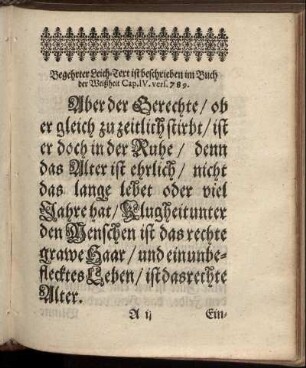 Begehrter Leich-Text ist beschrieben im Buch
der Weißheit Cap. IV. vers. 7 8 9.
Aber der Gerechte / ob
er gleich zu zeitlich stirbt / ist
er doch in der Ruhe / denn
das Alter ist ehrlich / nicht
das lange lebet oder viel
Jahre hat / Klugheit unter
den Menschen ist das rechte
grawe Haar / und ein unbe-
flecktes Leben / ist das rechte
Alter.
A ij Ein-